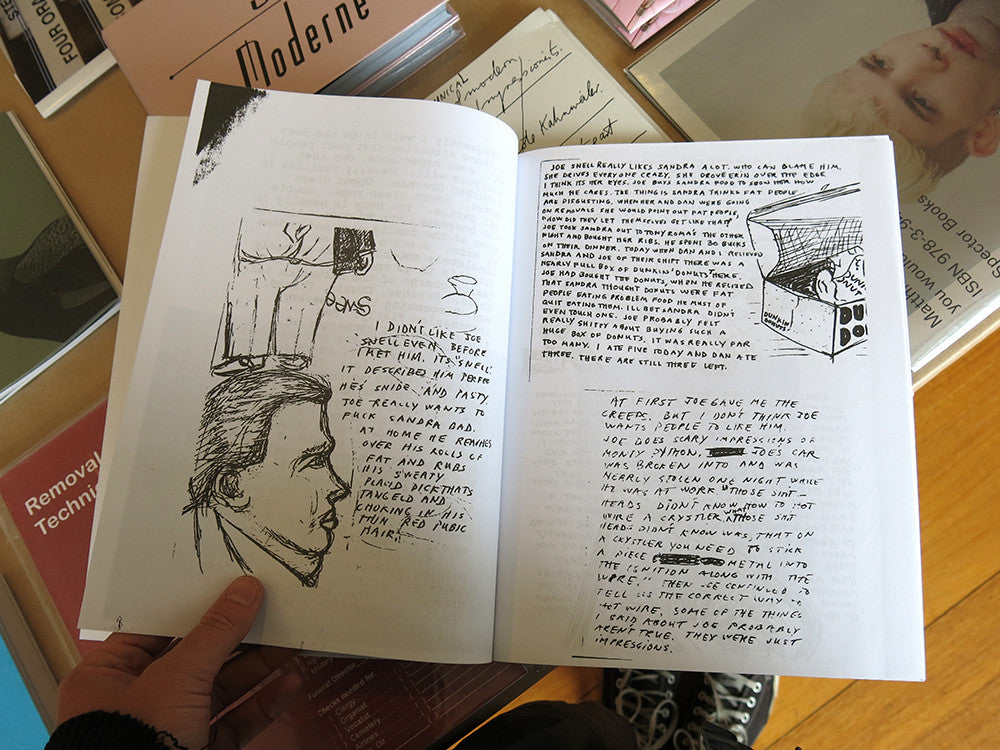 STE
FOUR ORA
Moderne
NICAL
dmodern
Kahnweiler.
Removal
Techni
Spector Books
ISBN 978-3-9
you would
Matth
I DIDN'T LIKE JOE
SNELL EVEN BEFORE
I MET HIM. ITS "SNELL"
IT DESCRIBED HIM
HE'S SNIDE AND PASTY.
JOE REALLY WANTS TO
FUCK SANDRA BAD.
AT HOME HE REACHES
OVER HIS ROLLS OF
FAT AND RUBS
HIS SWEATY
PLACID DICK THATS
TANGELD AND
CHOKING IN HIS
THIN RED PUBIC
HAIR.
JOE SNELL REALLY LIKES SANDRA A LOT. WHO CAN BLAME HIM.
SHE DRIVES EVERYONE CRAZY. SHE DROVE ERIN OVER THE EDGE.
I THINK ITS HER EYES. JOE BUYS SANDRA FOOD TO SHOW HER HOW
MUCH HE CARES. THE THING IS SANDRA THINKS FAT PEOPLE
ARE DISGUSTING. WHEN HER AND DAN WERE GOING
ON REMOVALS SHE WOULD POINT OUT FAT PEOPLE,
"HOW DID THEY LET THEMSELVES GET LIKE THAT?"
JOE TOOK SANDRA OUT TO TONY ROMA'S THE OTHER
NIGHT AND BOUGHT HER RIBS. HE SPENT 30 BUCKS
ON THEIR DINNER. TODAY WHEN DAN AND I RELIEVED
SANDRA AND JOE OF THEIR SHIFT THERE WAS A
NEARLY FULL BOX OF DUNKIN' DONUTS THERE.
JOE HAD BOUGHT THE DONUTS, WHEN HE RELIZED
THAT SANDRA THOUGHT DONUTS WERE FAT
PEOPLE EATING PROBLEM FOOD HE MUST OF
QUIT EATING THEM. ILL BET SANDRA DIDN'T
EVEN TOUCH ONE. JOE PROBABLY FELT
REALLY SHITTY ABOUT BUYING SUCH A
HUGE BOX OF DONUTS. IT WAS REALLY FAR
TOO MANY. I ATE FIVE TODAY AND DAN ATE
THREE. THERE ARE STILL THREE LEFT.
DUNKIN
DONUTS
DU
DO
AT FIRST JOE GAVE ME THE
CREEPS. BUT I DON'T THINK JOE
WANTS PEOPLE TO LIKE HIM.
JOE DOES SCARY IMPRESSIONS OF
MONTY PYTHON. JOES CAR
WAS BROKEN INTO AND WAS
NEARLY STOLEN ONE NIGHT WHILE
HE WAS AT WORK. "THOSE SHIT-
HEADS DIDN'T KNOW HOW TO HOT
WIRE A CRYSTLER. WHAT THOSE SHIT
HEADS DIDN'T KNOW WAS, THAT ON
A CRYSTLER YOU NEED TO STICK
A PIECE METAL INTO
THE IGNITION ALONG WITH THE
WIRE." THEN HE CONTINUED TO
TELL US THE CORRECT WAY TO
HOT WIRE. SOME OF THE THINGS
I SAID ABOUT JOE PROBABLY
AREN'T TRUE. THEY WERE JUST
IMPRESSIONS.
Funeral Director
Checks needed for:
Clergy
Organist
Vocalist
Cemetery
Airlines